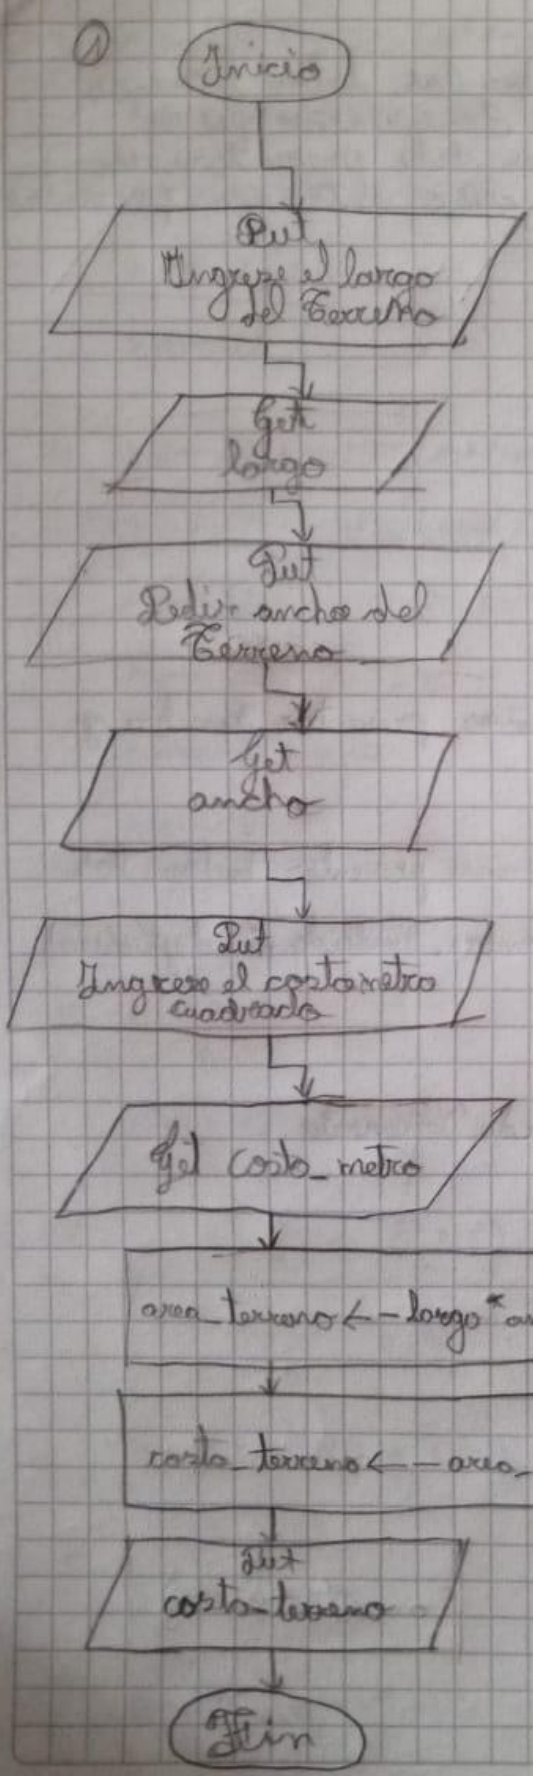 1
Inicio
Put
"Ingrese el largo
del Terreno
Get
largo
Put
Pedir ancho del
Terreno
Get
ancho
Put
Ingrese el costo metro
cuadrado
Get costo_metro
area_terreno <-- largo * an
costo_terreno <-- area_
Put
costo_terreno
Fin